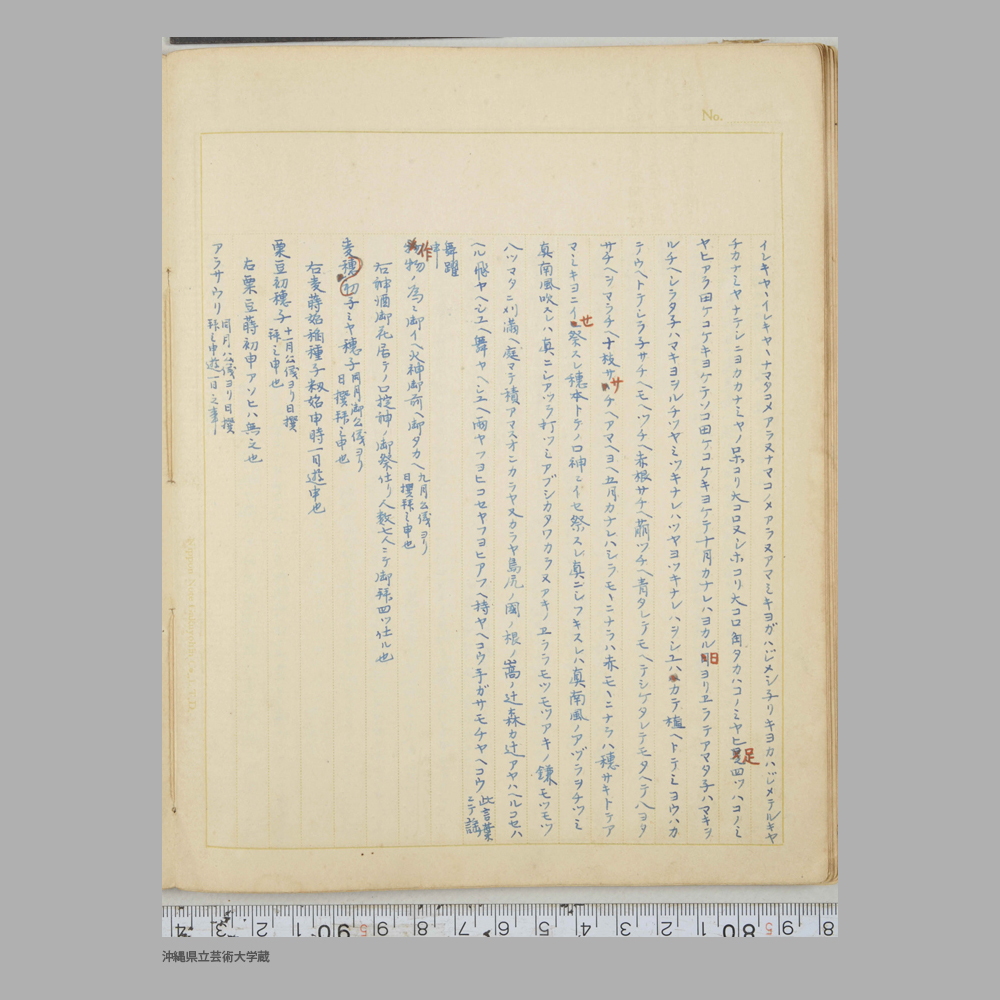 No.
イシキヤヽイシキヤヽナマタコメアラヌナマコノメアラヌアマミキヨガハジメシチリキヨカハジメテルキヤ
チカナミヤナデシニヨカカナミヤノ呆コリ大コロヌシホコリ大コロ角タカハコノミヤヒ足四ツハコノミ
ヤヒアラ田ケコケキヨケテソコ田ケコケキヨケテ十月カナレハヨカル明ヨリヱラテアマタ子ハマキヲ
ルチヘシラタ子ハマキヨヲルチツヤミツキナレハツヤヨツキナレハヲシユハカテ植ヘトテミヨウハカ
テウヘトテシラ子サチヘモヘツチヘ赤根サチヘ萠ツチヘ青タレテモヘテシケタレテモタヘテ八ヨタ
サチヘヲマラチヘ十枝ササチヘアマヘヨヘ五月カナレハシラモヽニナラハ赤モヽニナラハ穂サキトテア
マミキヨニイセ祭スレ穂本トテノロ神ニイセ祭スレ真ニシフキスレハ真南風ノアヅラヲチツミ
真南風吹スレハ真ニシアヅラ打ツミアブシカタワカラヌアキノヱララモツモツアキノ鎌モツモツ
ハツマタニ刈満ヘ庭マテ積アマスオニカラヤヌカラヤ島尻ノ國ノ根ノ嵩ノ辻森カ辻アヤハヘルコセハ
ヘル飛ヤヘシユヘ舞ヤヘシユヘ雨ヤフヨヒコセヤフヨヒアフヘ持ヤヘコウ手ガサモチヤヘコウ 此言葉ニテ謡
舞躍申
作物ノ為ミ御イヘ火神御前ヘ御タカヘ 九月公儀ヨリ日撰拜ミ申也
右神酒御花居テノロ掟神ノ御祭仕リ人数七人ニテ御拜四ツ仕ル也
麦穂初子ミヤ穂子 同月御公儀ヨリ日撰拜ミ申也
右麦蒔始稲種子㔟始申時一日遊申也
粟豆初穂子 十一月公儀ヨリ日撰拜ミ申也
右粟豆蒔初申アソヒハ無之也
アラサウリ 同月公儀ヨリ日撰拜ミ申遊一日之事
沖縄県立芸術大学蔵